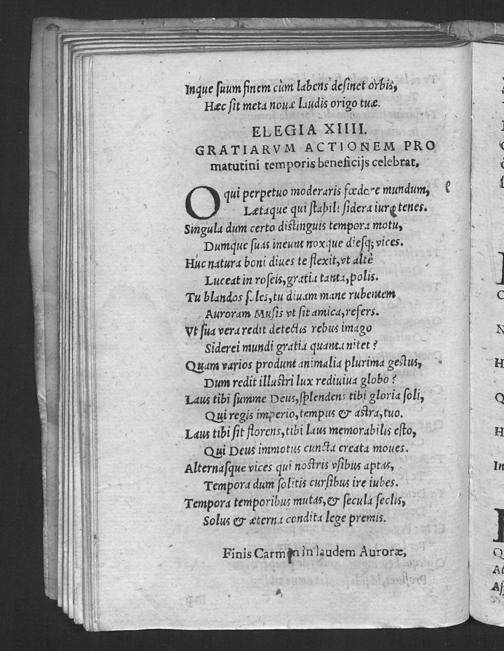 Inque suum finem cùm labens desinet orbis,
Hæc sit meta nouæ laudis origo tuæ.
ELEGIA XIIII.
GRATIARVM ACTIONEM PRO
matutini temporis beneficijs celebrat,
O qui perpetuo moderaris fœdere mundum,
Lætaque qui stabili sidera iure tenes.
Singula dum certo distinguis tempora motu,
Dumque suas ineunt noxque diesq; vices.
Húc natura boni diues te flexit, vt altè
Luceat in roseis, gratia tanta, polis.
Tu blandos soles, tu diuam mane rubentem
Auroram Musis vt sit amica, refers.
Vt sua vera redit detectis rebus imago
Siderei mundi gratia quanta nitet?
Quam varios produnt animalia plurima gestus,
Dum redit illustri lux rediuiua globo?
Laus tibi summe Deus, splendens tibi gloria soli,
Qui regis imperio, tempus & astra, tuo.
Laus tibi sit florens, tibi laus memorabilis esto,
Qui Deus immotus cuncta creata moues.
Alternasque vices qui nostris vsibus aptas,
Tempora dum solitis cursibus ire iubes.
Tempora temporibus mutas, & secula seclis,
Solus & æterna condita lege premis.
Finis Carmen in laudem Auroræ,